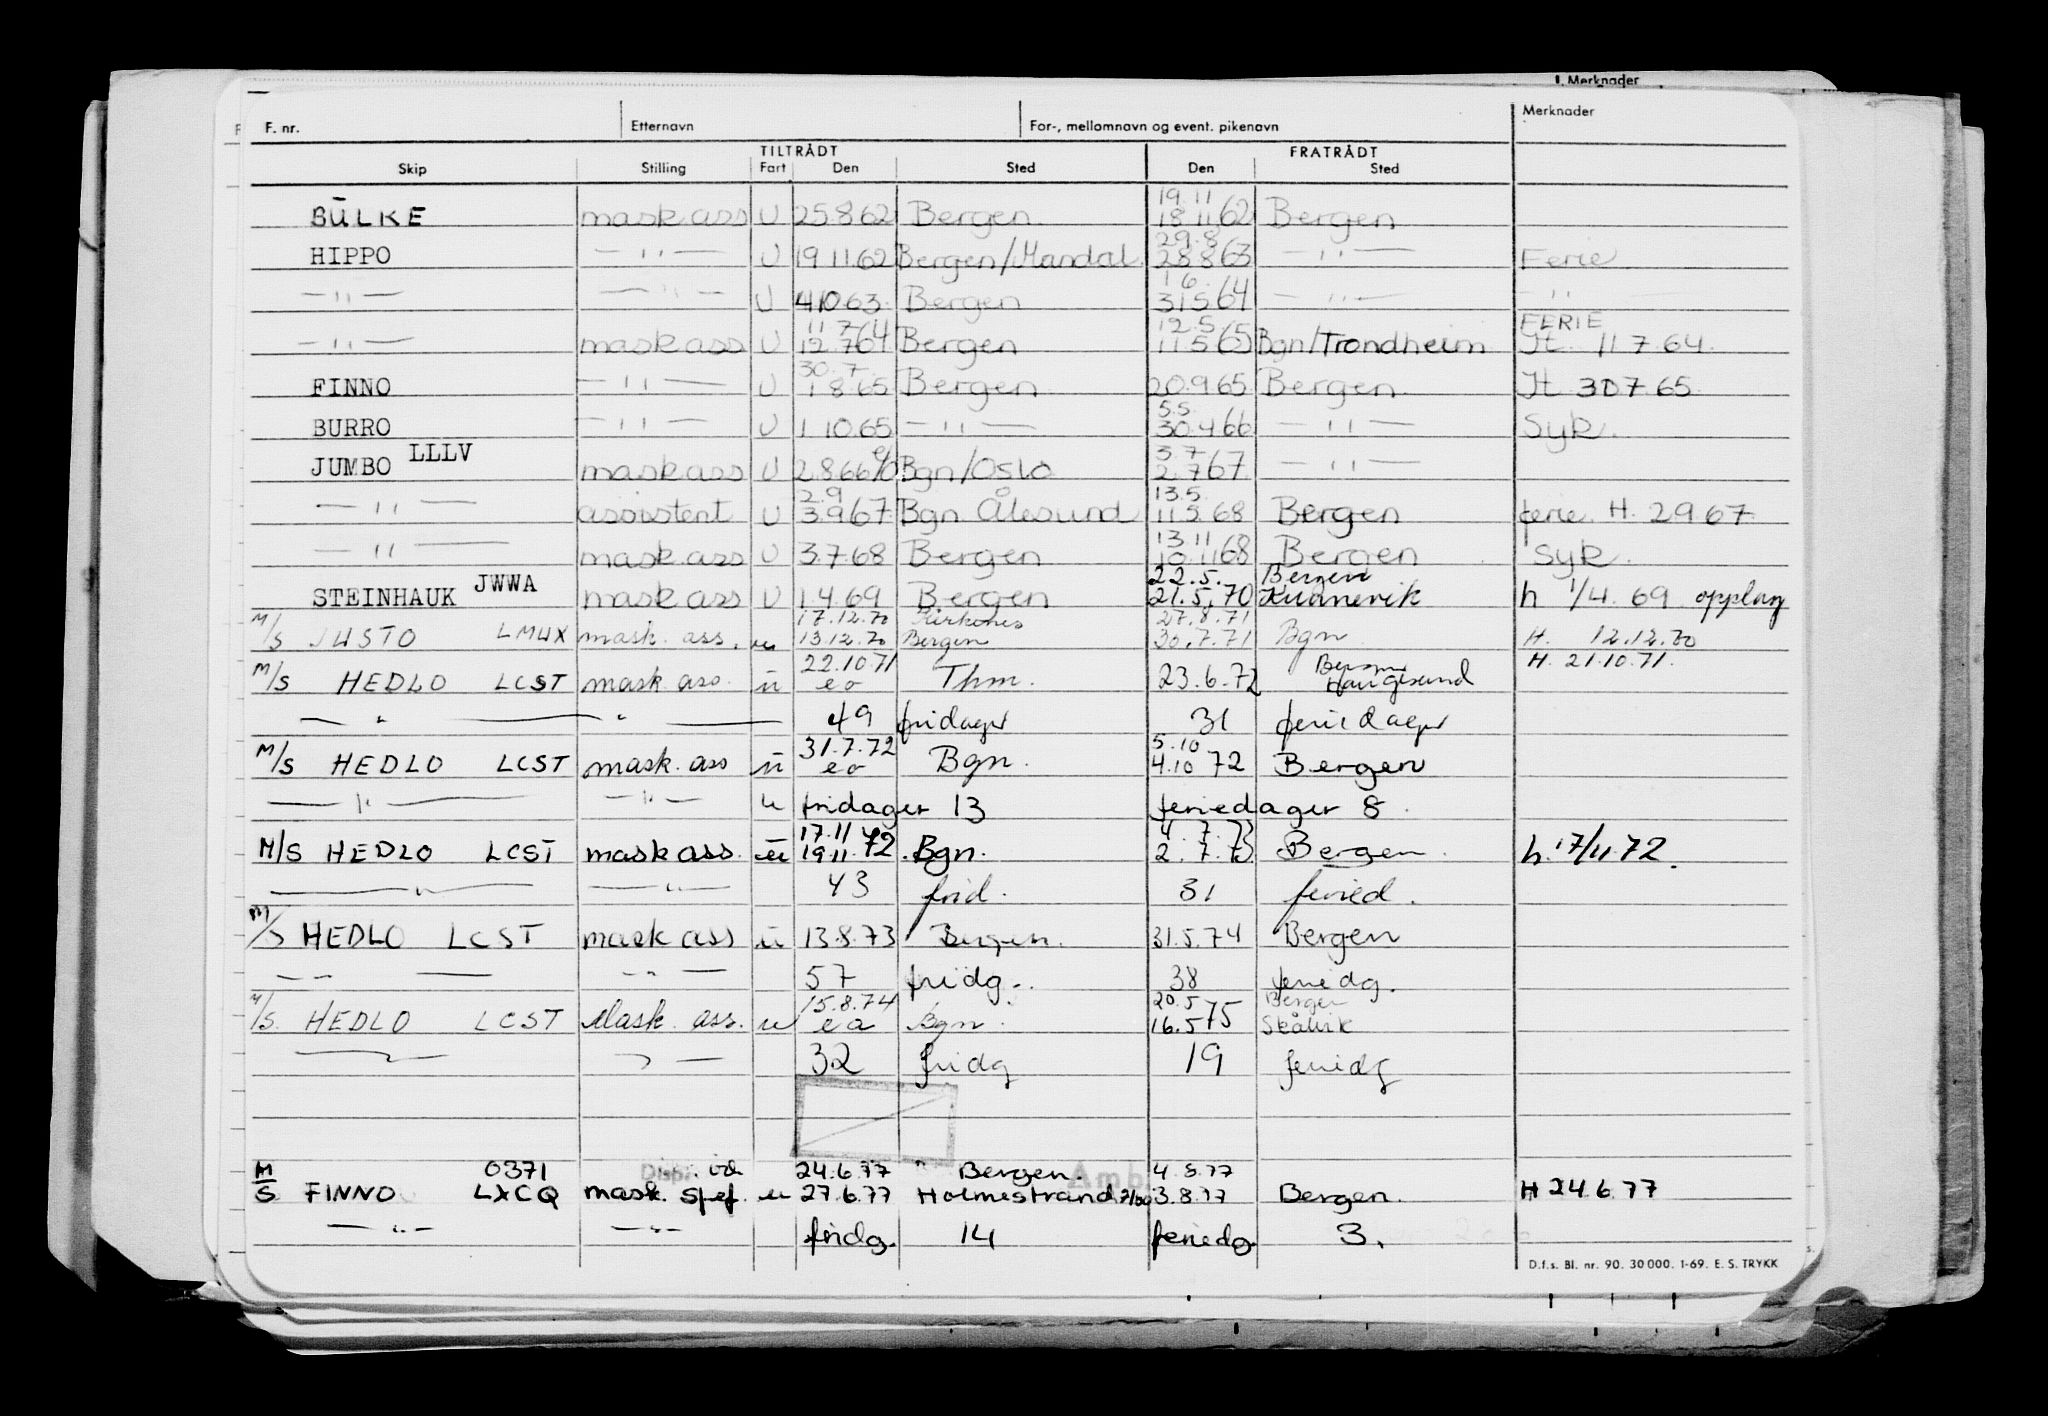 Merknader
F. nr. Etternavn For-, mellomnavn og event. pikenavn Merknader
TILTRÅDT FRATRÅDT
Skip Stilling Fart Den Sted Den Sted
19.11
BULKE mask ass U 25.8.62 Bergen 18.11.62 Bergen
29.8
HIPPO — " — U 19 11.62 Bergen/Mandal 28.8.63 — " — Ferie
1 6.
— " — — " — U 4.10.63. Bergen 31.5.64 — " — — " —
11 7 12.5 FERIE
— " — mask ass U 12.7.64 Bergen 11.5.65 Bgn/Trondheim Jt. 11.7.64.
30.7.
FINNO — " — U 1.8.65 Bergen 20.9.65 Bergen Jt 30.7.65
5.5.
BURRO — " — U 1.10.65 — " — 30.4.66 — " — Syk.
LLLV 3.7
JUMBO mask ass U 2.8.66 Bgn/Oslo 2.7.67 — " —
2.9 13.5.
— " — assistent U 3.9.67 Bgn Ålesund 11.5.68 Bergen ferie. H. 2.9.67
13.11
— " — mask ass U 3.7.68 Bergen 10.11.68 Bergen Syk.
JWWA 22.5. Bergen
STEINHAUK mask ass U 1.4.69 Bergen 21.5.70 Kvinnevik h 1/4. 69 opplag
17.12.70 Kirkenes 27.8.71
M/S JUSTO LMWX mask. ass. u 13.12.70 Bergen 30.7.71 Bgn H. 12.12.70
22.10.71 Bergen H. 21.10.71.
M/S HEDLO LCST mask. ass. u eo Thm. 23.6.72 Haugesund
— " — — " — 49 fridager 31 feriedager
31.7.72 5.10
M/S HEDLO LCST mask. ass u eo Bgn. 4.10 72 Bergen
— " — — " — u fridager 13 feriedager 8.
17.11 4.7.73
M/S HEDLO LCST mask ass. u 19.11.72 Bgn. 2.7.73 Bergen. h. 17/11.72.
— " — — " — 43 frid. 31 feried.
M/S HEDLO LCST mask ass u 13.8.73 Bergen. 31.5.74 Bergen
— — — " — 57 fridg. 38 feridg.
15.8.74 20.5 Bergen
M/S. HEDLO LCST Mask. ass. u ea Bgn. 16.5 75 Skålvik
— " — — " — 32 fridg 19 feridg
0371 Disp. 24.6.77 " Bergen. Amb 4.8.77
M/S FINNO LXCQ mask. u 27.6.77 Holmestrand 3.8.77 Bergen. H 24.6.77
— " — — " — fridg. 14 feriedg. 3.
D.f.s. Bl. nr. 90. 30 000. 1-69. E. S. TRYKK